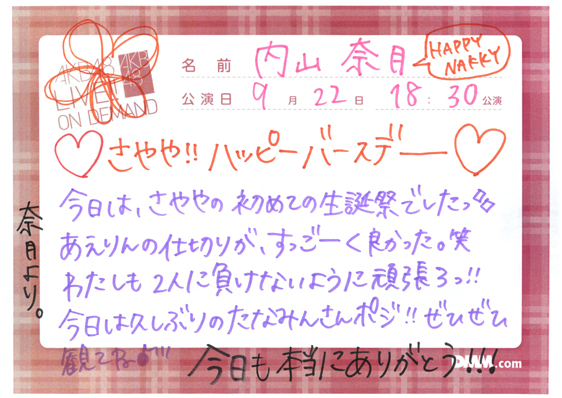 AKB48
LIVE!!
ON DEMAND
AKB
48
名前 内山奈月
HAPPY
NAKKY
公演日 9月22日 18:30公演
♡さやや!! ハッピーバースデー♡
今日は、さややの初めての生誕祭でしたっ
あえりんの仕切りが、すっごーく良かった。笑
わたしも2人に負けないように頑張ろっ!!
今日は久しぶりのたなみんさんポジ!! ぜひぜひ
観てね
今日も本当にありがとう!!!
DMM.com
奈月より。